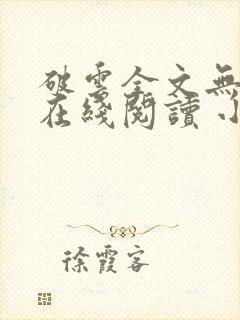 破雲全文無
在綫閱讀 小
徐霞客